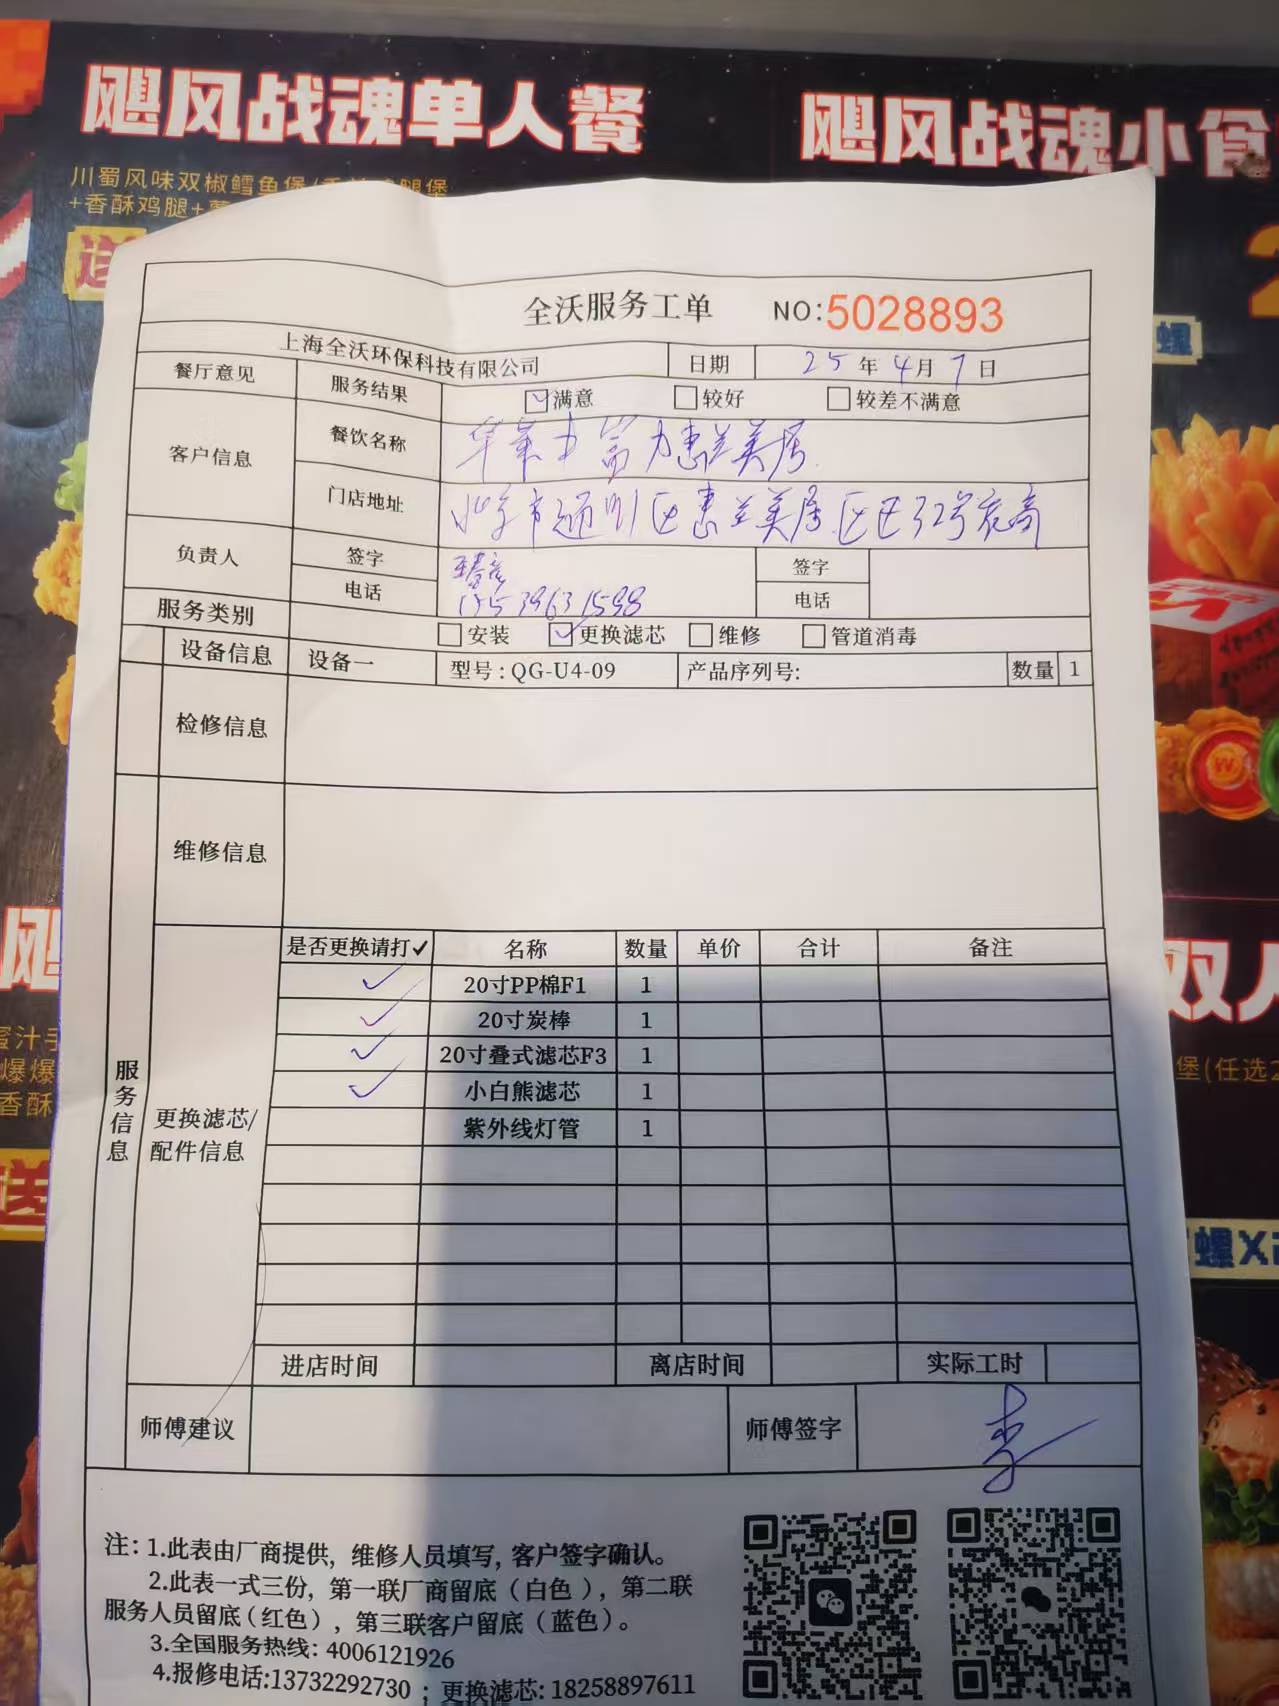 飓风战魂单人餐
飓风战魂小食
川蜀风味双椒鳕鱼堡
+香酥鸡腿+
送
全沃服务工单 NO:5028893
上海全沃环保科技有限公司 日期 25年4月7日
餐厅意见 服务结果 满意 较好 较差不满意
客户信息 餐饮名称 华莱士富力惠兰美居
门店地址 北京市通州区惠兰美居
负责人 签字 签字
电话 电话
服务类别 安装 ✓更换滤芯 维修 管道消毒
设备信息 设备一 型号:QG-U4-09 产品序列号: 数量 1
检修信息
维修信息
服务信息
更换滤芯/
配件信息
是否更换请打✓ 名称 数量 单价 合计 备注
✓ 20寸PP棉F1 1
✓ 20寸炭棒 1
✓ 20寸叠式滤芯F3 1
✓ 小白熊滤芯 1
紫外线灯管 1
进店时间 离店时间 实际工时
师傅建议 师傅签字 李
注:1.此表由厂商提供,维修人员填写,客户签字确认。
2.此表一式三份,第一联厂商留底(白色),第二联
服务人员留底(红色),第三联客户留底(蓝色)。
3.全国服务热线:4006121926
4.报修电话:13732292730;更换滤芯:18258897611
螺
双人
堡(任选2
飓
蜜汁手
爆爆
香酥
送
螺X